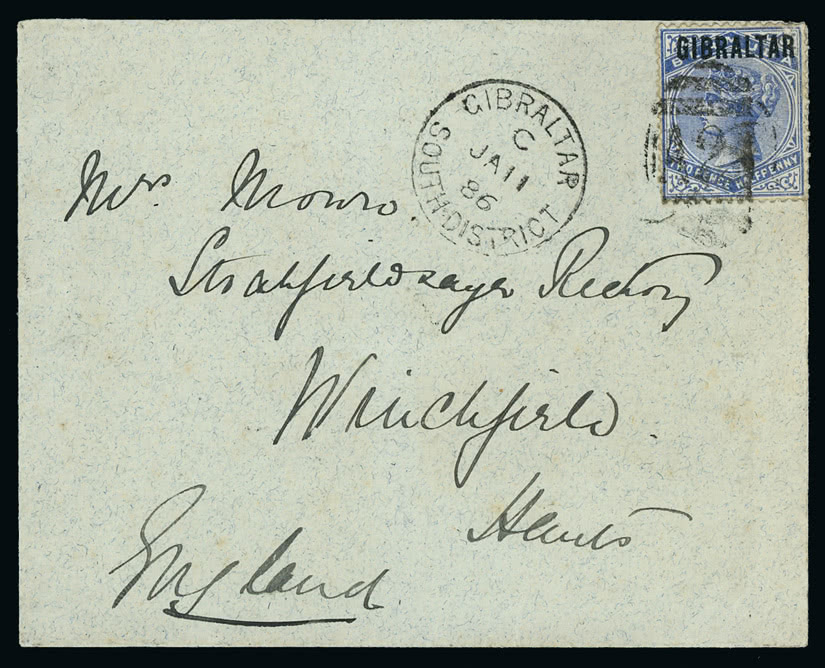 GIBRALTAR
TWO PENCE HALFPENNY
GIBRALTAR
C
JA 11
86
SOUTH-DISTRICT
Mrs Monro.
Strathfieldsaye Rectory
Winchfield
Hants
England